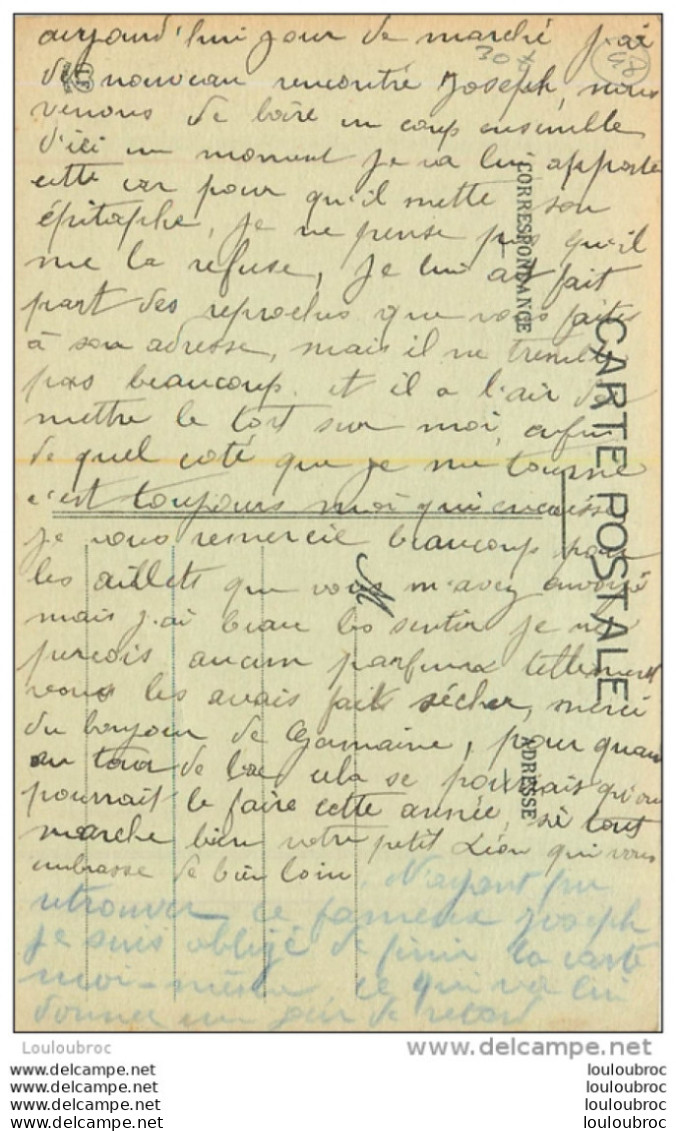 aujourd'hui jour de marché j'ai
de nouveau rencontré Joseph, nous
venons de boire un coup ensemble
d'ici un moment je va lui apporte
cette car pour qu'il mette son
épitaphe, je ne pense pas qu'il
me la refuse, je lui ait fait
part des reproches que vous faites
à son adresse, mais il ne tremble
pas beaucoup. et il a l'air de
mettre le tort sur moi, enfin
de quel coté que je me tourne
c'est toujours moi qui encaisse
je vous remercie beaucoup pour
les aillets que vous m'avez envoyé
mais j'ai beau les sentir je ne
percois aucun parfum tellement
vous les avais faits sécher, merci
du bonjour de Germaine, pour quan
au tour de lac cela se pourrais qu'on
pourrait le faire cette année, si tout
marche bien votre petit Léon qui vous
embrasse de bien loin
N'ayant pu
retrouver ce fameux Joseph
je suis obligé de finir la carte
moi-même ce qui va lui
donner un jour de retard
CARTE POSTALE
CORRESPONDANCE
ADRESSE
M
48
Louloubroc
delcampe.net
louloubroc
louloubroc
louloubroc
louloubroc